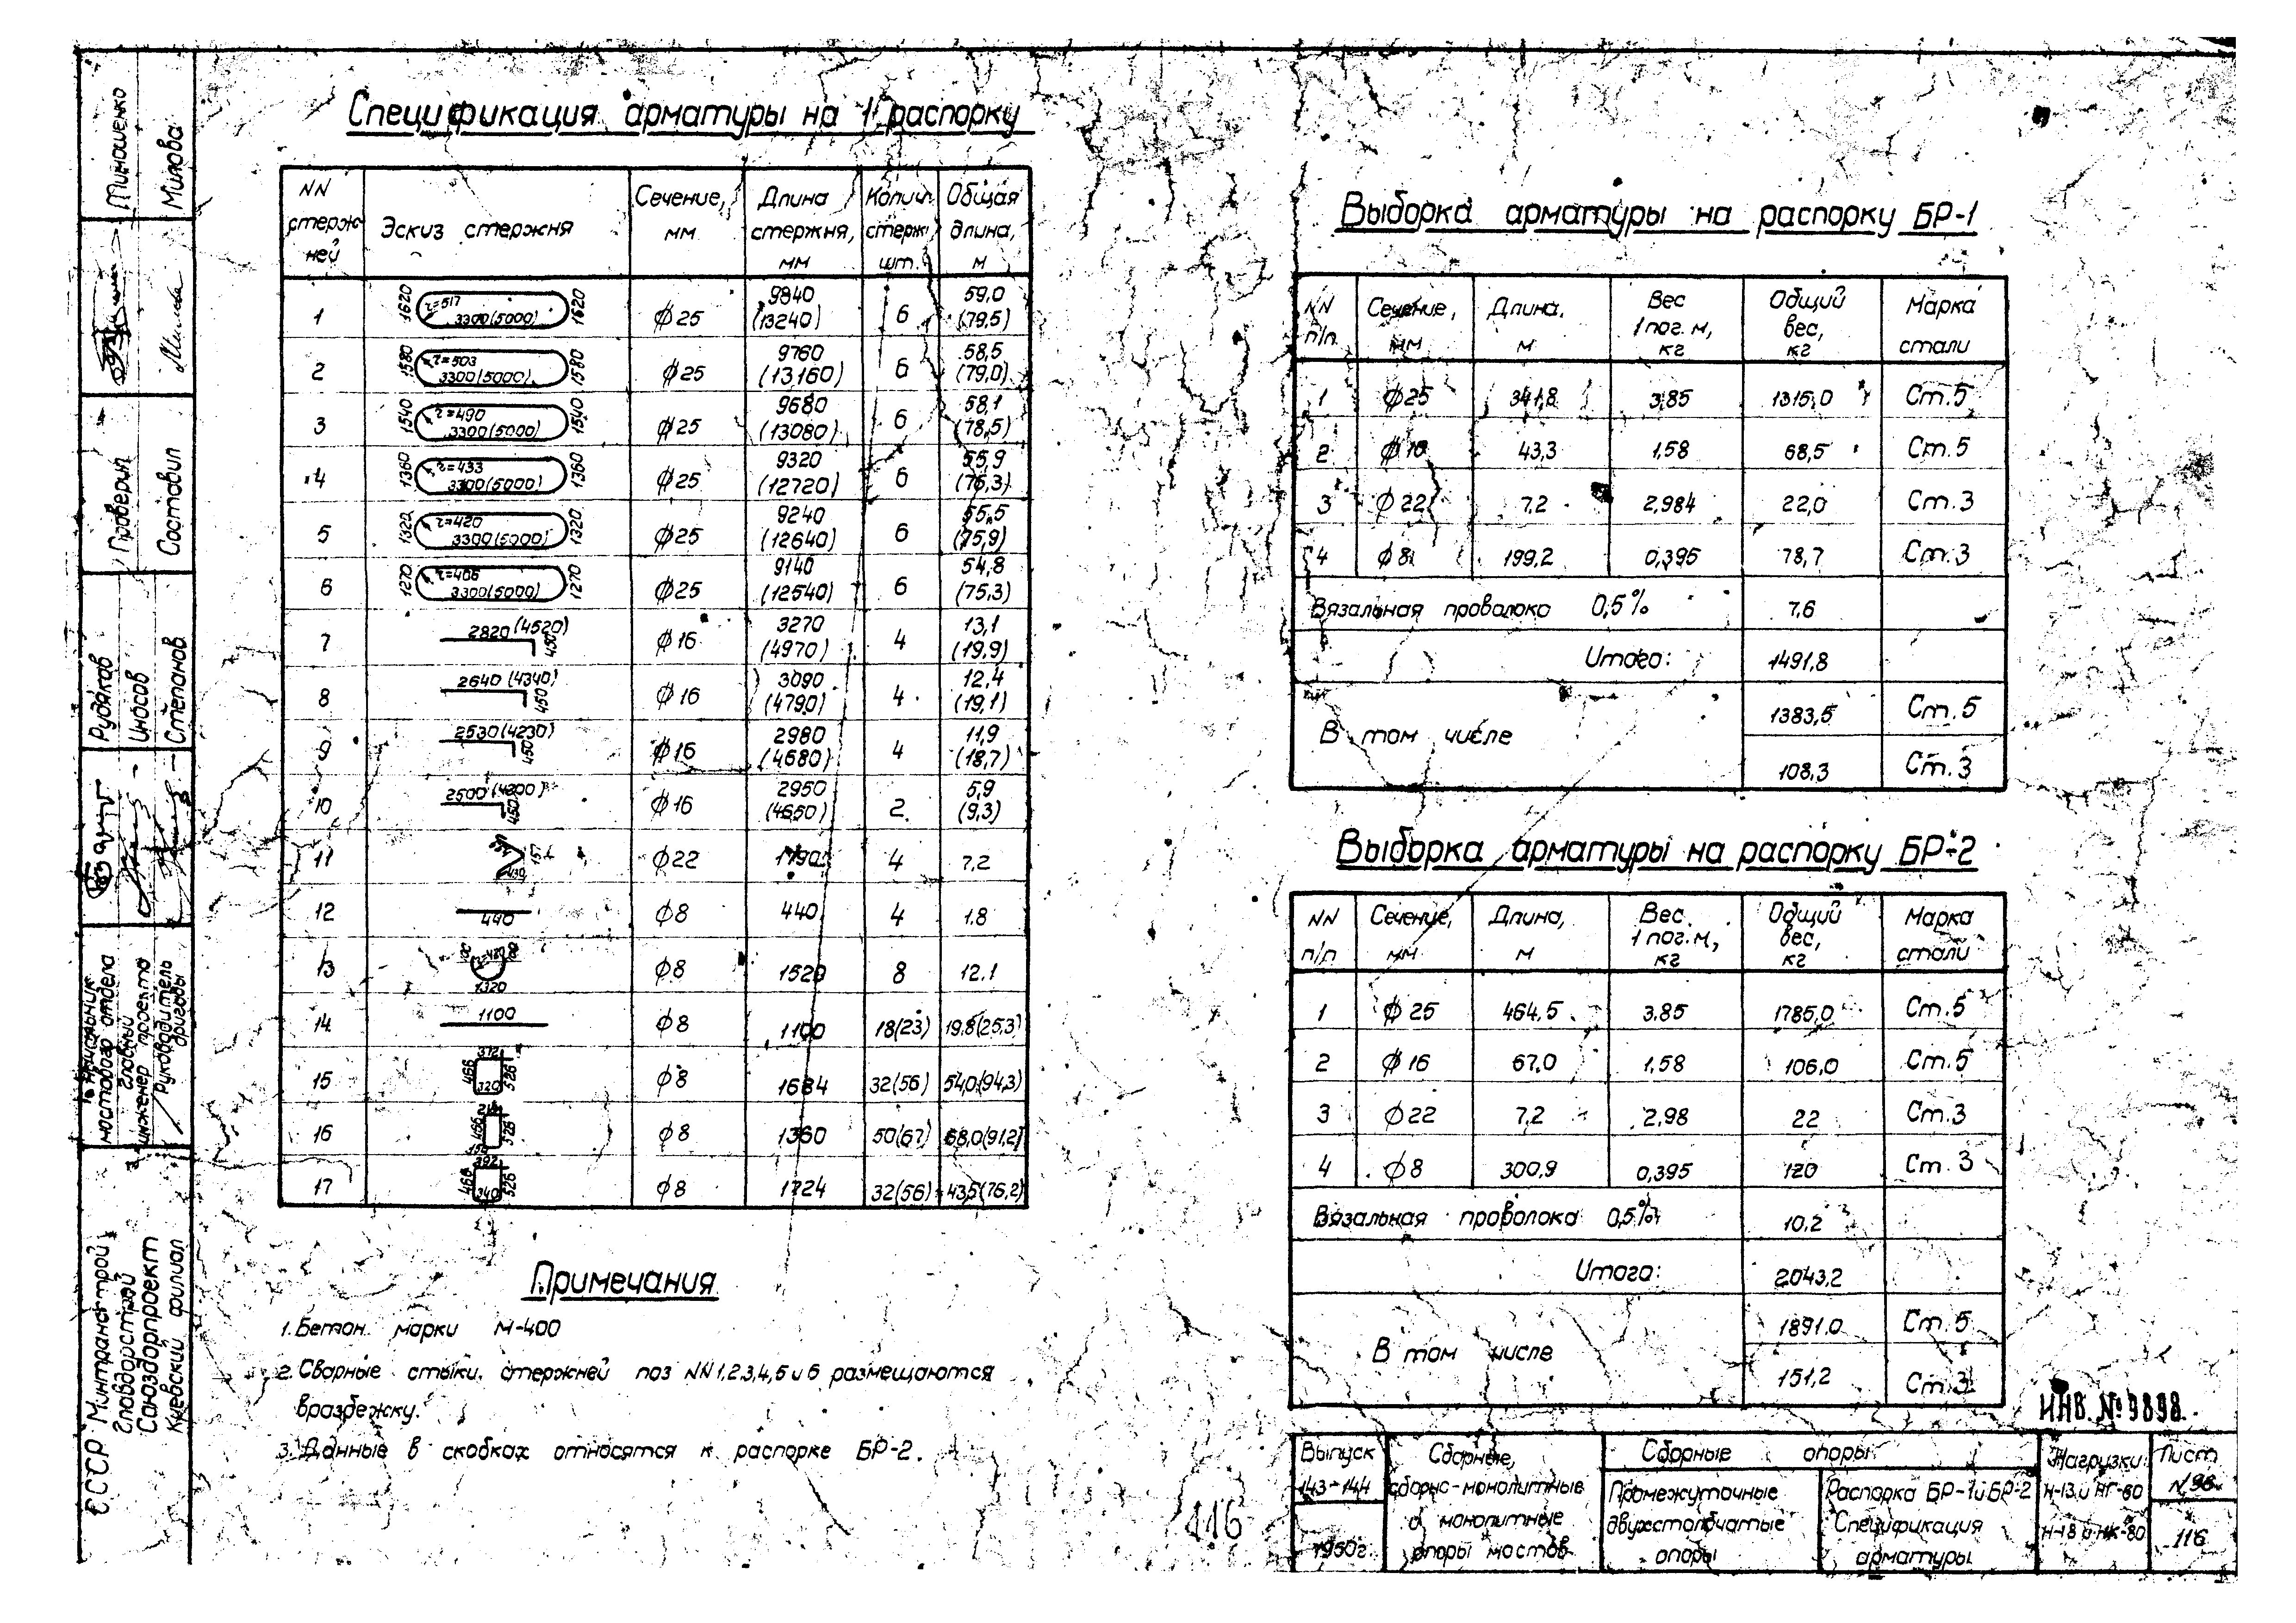 Спецификация арматуры на 1 распорку
NN стержней | Эскиз стержня | Сечение, мм | Длина стержня, мм | Колич. стерж. шт. | Общая длина, м
1 | 1620 r=517 3300(5000) 1620 | ϕ25 | 9840 (13240) | 6 | 59,0 (79,5)
2 | 1580 r=503 3300(5000) 1580 | ϕ25 | 9760 (13160) | 6 | 58,5 (79,0)
3 | 1540 r=490 3300(5000) 1540 | ϕ25 | 9680 (13080) | 6 | 58,1 (78,5)
4 | 1360 r=433 3300(5000) 1360 | ϕ25 | 9320 (12720) | 6 | 55,9 (76,3)
5 | 1320 r=420 3300(5000) 1320 | ϕ25 | 9240 (12640) | 6 | 55,5 (75,9)
6 | 1270 r=406 3300(5000) 1270 | ϕ25 | 9140 (12540) | 6 | 54,8 (75,3)
7 | 2820 (4520) 450 | ϕ16 | 3270 (4970) | 4 | 13,1 (19,9)
8 | 2640 (4340) 450 | ϕ16 | 3090 (4790) | 4 | 12,4 (19,1)
9 | 2530 (4230) 450 | ϕ16 | 2980 (4680) | 4 | 11,9 (18,7)
10 | 2500 (4200) 450 | ϕ16 | 2950 (4650) | 2 | 5,9 (9,3)
11 | ϕ22 | 1790 | 4 | 7,2
12 | 440 | ϕ8 | 440 | 4 | 1.8
13 | 1320 | ϕ8 | 1520 | 8 | 12.1
14 | 1100 | ϕ8 | 1100 | 18(23) | 19.8(25.3)
15 | 372 466 320 526 | ϕ8 | 1684 | 32(56) | 54,0(94,3)
16 | 466 526 | ϕ8 | 1360 | 50(67) | 68,0(91,2)
17 | 392 466 340 526 | ϕ8 | 1724 | 32(56) | 43,5(76,2)
Примечания
1. Бетон марки М-400
2. Сварные стыки стержней поз NN 1,2,3,4,5 и 6 размещаются
вразбежку.
3. Данные в скобках относятся к распорке БР-2.
Выборка арматуры на распорку БР-1
NN п/п | Сечение, мм | Длина, м | Вес 1 пог. м, кг | Общий вес, кг | Марка стали
1 | ϕ25 | 341,8 | 3,85 | 1315,0 | Ст.5
2 | ϕ16 | 43,3 | 1,58 | 68,5 | Ст.5
3 | ϕ22 | 7.2 | 2,984 | 22,0 | Ст.3
4 | ϕ8 | 199,2 | 0,395 | 78,7 | Ст.3
Вязальная проволока 0,5% | 7,6
Итого: | 1491,8
В том числе | 1383,5 | Ст.5
108,3 | Ст.3
Выборка арматуры на распорку БР-2
NN п/п | Сечение, мм | Длина, м | Вес 1 пог. м, кг | Общий вес, кг | Марка стали
1 | ϕ25 | 464,5 | 3.85 | 1785,0 | Ст.5
2 | ϕ16 | 67,0 | 1,58 | 106,0 | Ст.5
3 | ϕ22 | 7,2 | 2,98 | 22 | Ст.3
4 | ϕ8 | 300,9 | 0,395 | 120 | Ст.3
Вязальная проволока 0,5% | 10,2
Итого: | 2043.2
В том числе | 1891.0 | Ст.5
151,2 | Ст.3
ИНВ. № 9898
116
Выпуск 143-144
Сборные, сборно-монолитные и монолитные опоры мостов
Сборные опоры
Промежуточные двухстолбчатые опоры
Распорка БР-1 и БР-2 Спецификация арматуры
Нагрузки Н-13 и НГ-60 Н-18 и НК-80
Лист
116
СССР Минтрансстрой
Главдорстрой
Союздорпроект
Киевский филиал
Начальник мостового отдела
Главный инженер проекта
Руководитель бригады
Рудаков
Иносов
Степанов
Проверил
Составил
Минашенко
Милова